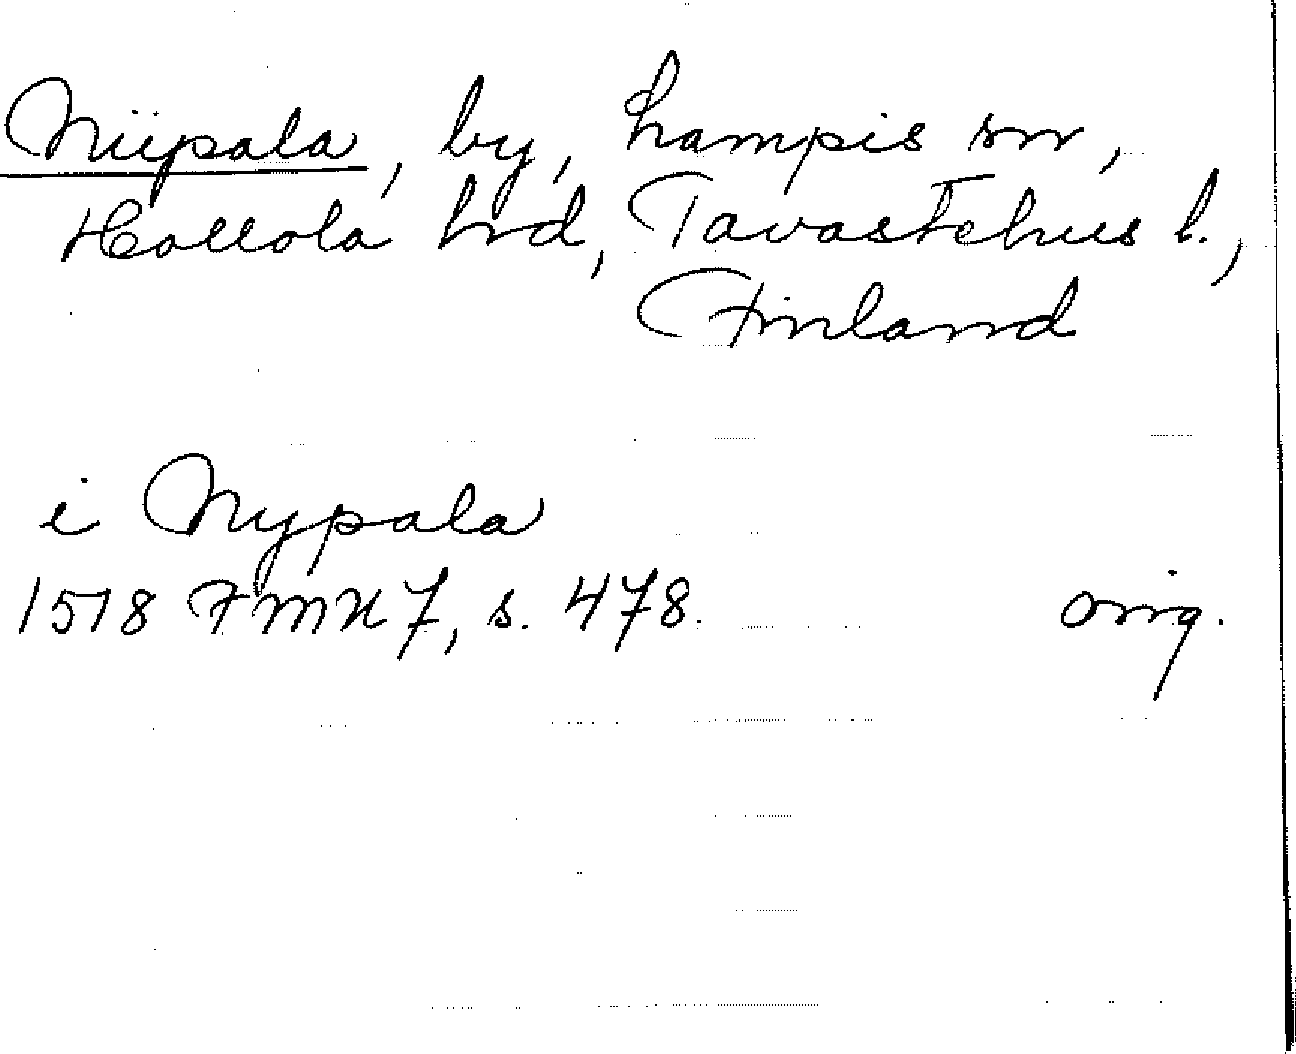 Niipala, by, Lampis sn,
Hollola hrd, Tavastehus l.,
Finland
i Nypala
1518 FMU 7, s. 478. orig.